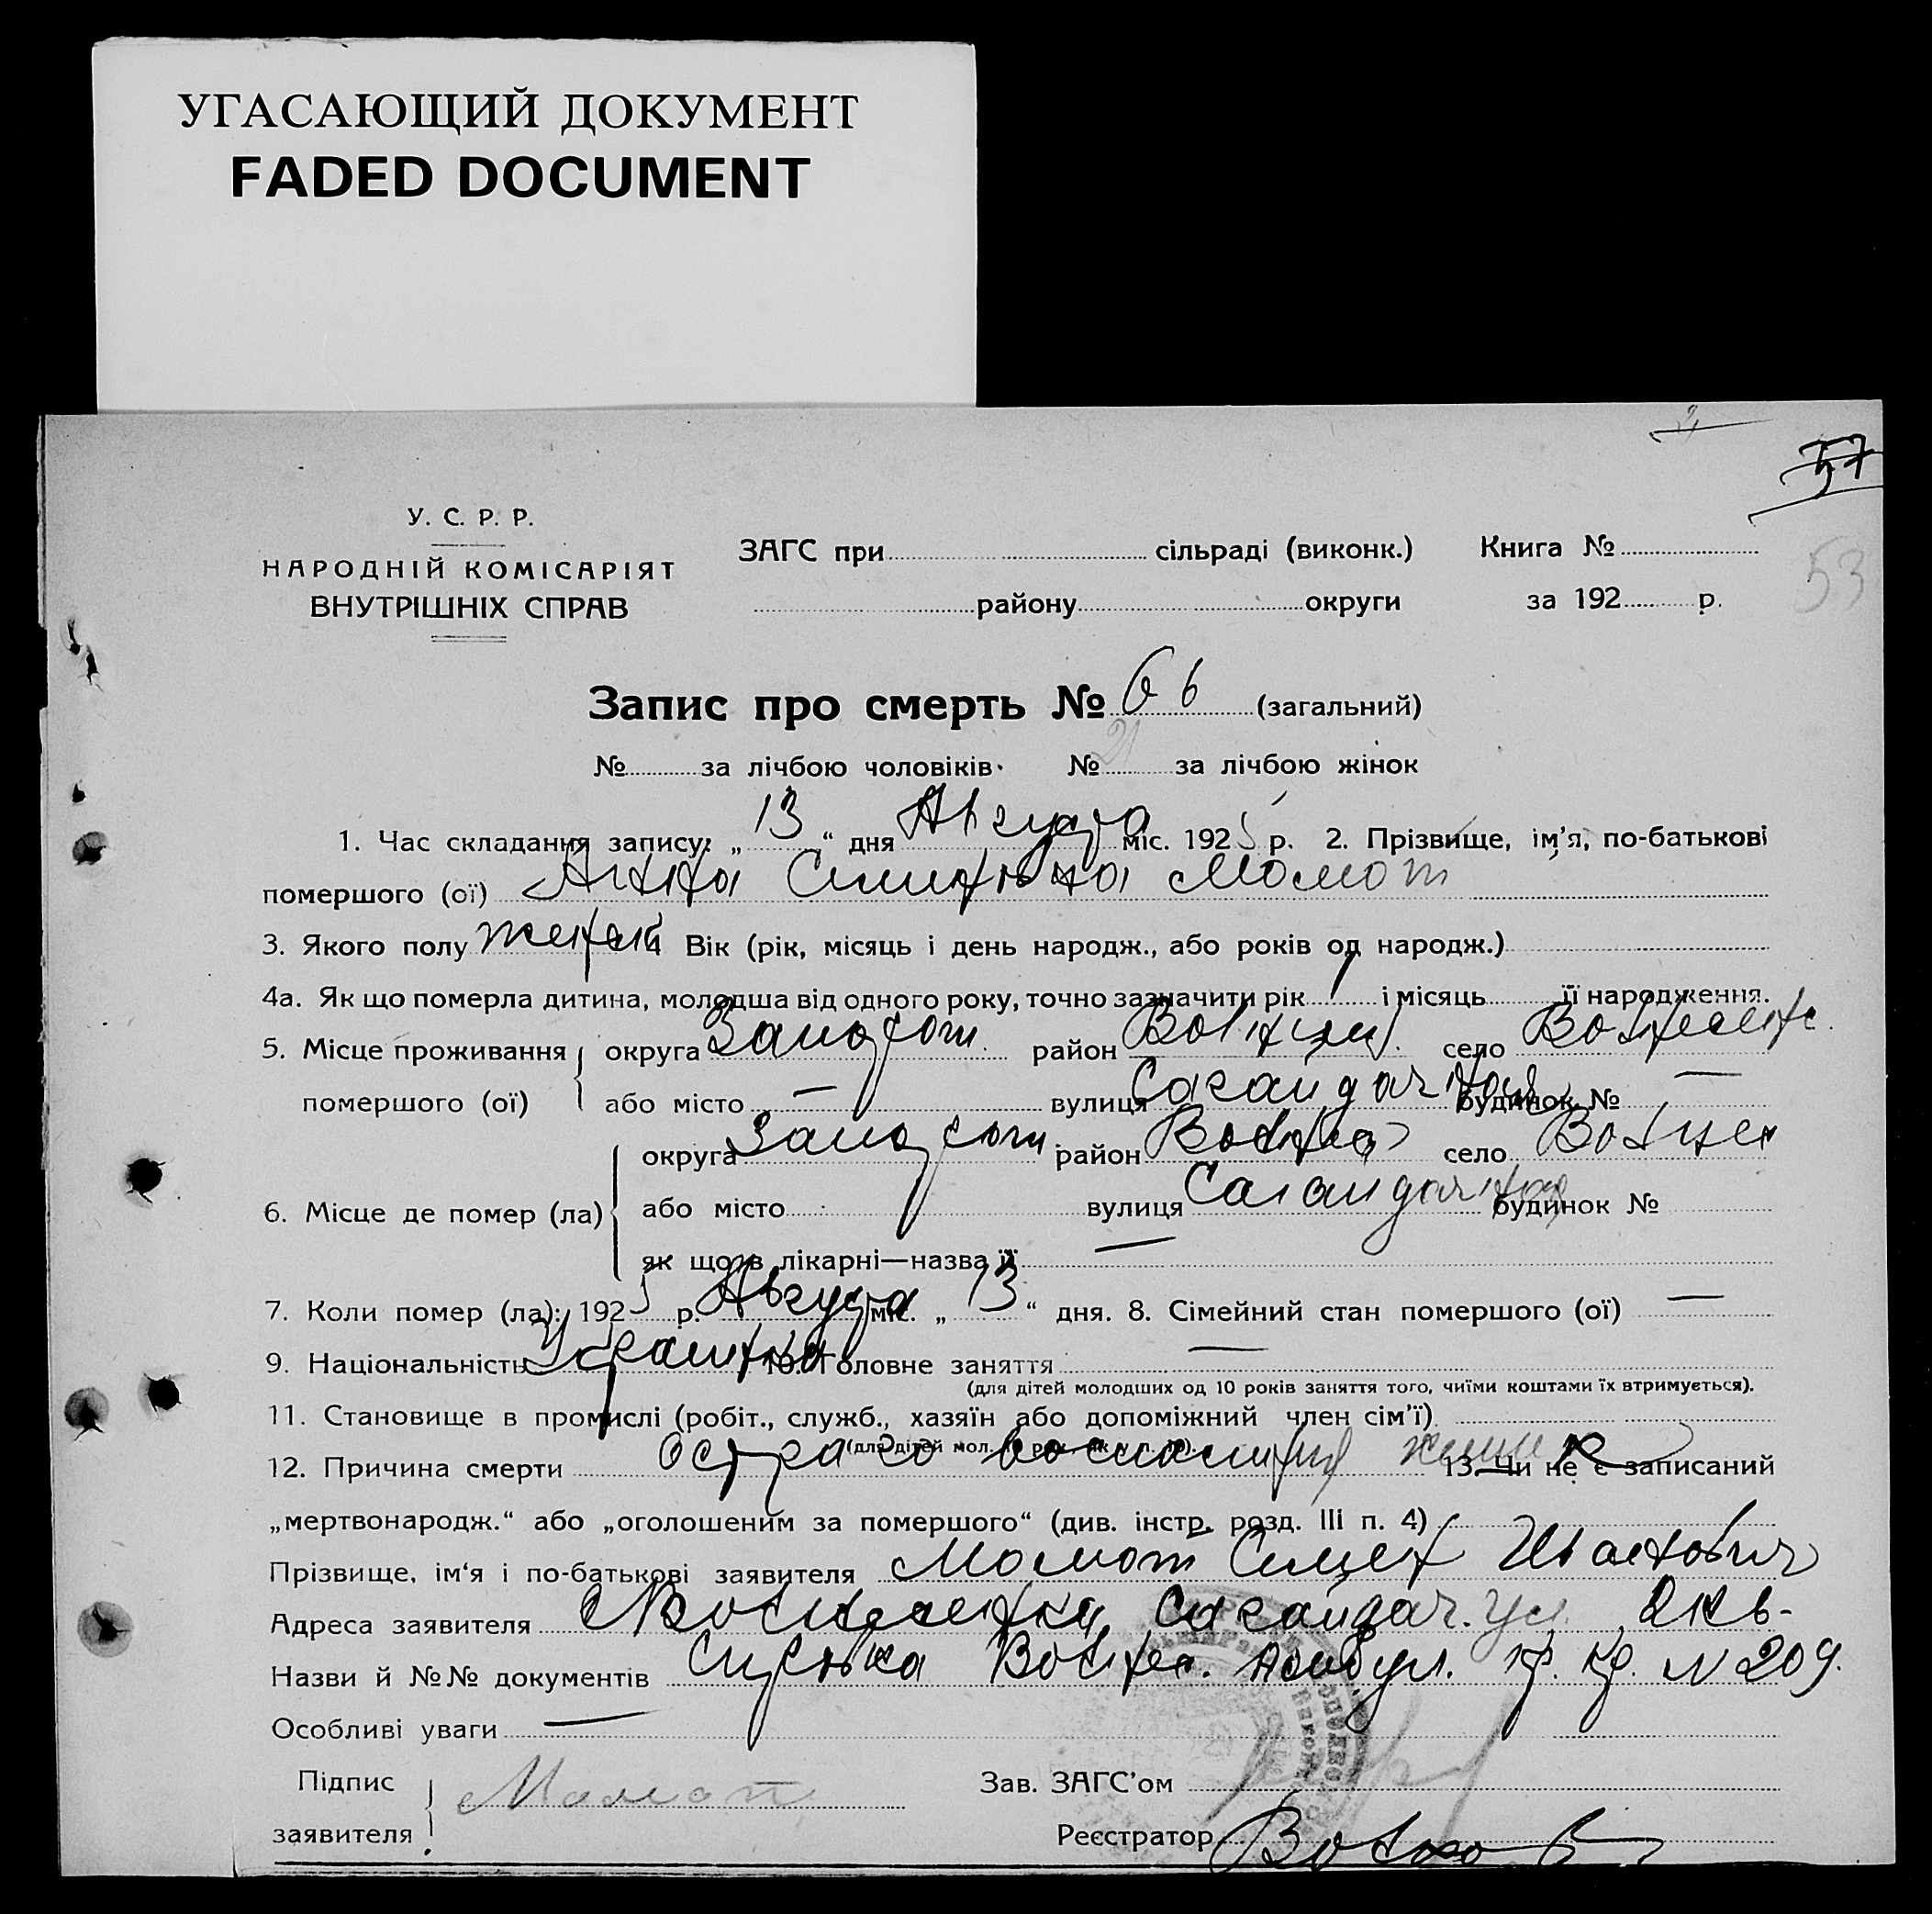 УГАСАЮЩИЙ ДОКУМЕНТ
FADED DOCUMENT
57
53
У. С. Р. Р.
НАРОДНІЙ КОМІСАРІЯТ
ВНУТРІШНІХ СПРАВ
ЗАГС при сільраді (виконк.) Книга №
району округи за 192 р.
Запис про смерть № 66 (загальний)
№ за лічбою чоловіків. № 21 за лічбою жінок
1. Час складання запису: „ 13 “ дня Августа міс. 1925 р. 2. Прізвище, ім’я, по-батькові
помершого (ої) Момот
3. Якого полу 4 Вік (рік, місяць і день народж., або років од народж.)
4а. Як що померла дитина, молодша від одного року, точно зазначити рік 1 і місяць її народження.
5. Місце проживання округа Запорож. район село
помершого (ої) або місто — вулиця Сагайдачная будинок № —
округа Запорож. район село
6. Місце де помер (ла) або місто вулиця Сагайдачная будинок №
як що в лікарні—назва її —
7. Коли помер (ла): 1925 р. Августа міс. „ 13 “ дня. 8. Сімейний стан помершого (ої) —
9. Національність 10. Головне заняття —
(для дітей молодших од 10 років заняття того, чиїми коштами їх втримується).
11. Становище в промислі (робіт., служб., хазяїн або допоміжний член сім’ї)
(для дітей мол. 10 рок. як у п. 10).
12. Причина смерти острого воспаления 13. Чи не є записаний
„мертвонародж.“ або „оголошеним за помершого“ (див. інстр. розд. III п. 4)
Прізвище, ім‘я і по-батькові заявителя Момот Семен Иванович
Адреса заявителя Вознесенка, Сагайдач. ул.
Назви й №№ документів N 209.
Особливі уваги —
Підпис Момот Зав. ЗАГС’ом
заявителя Реєстратор